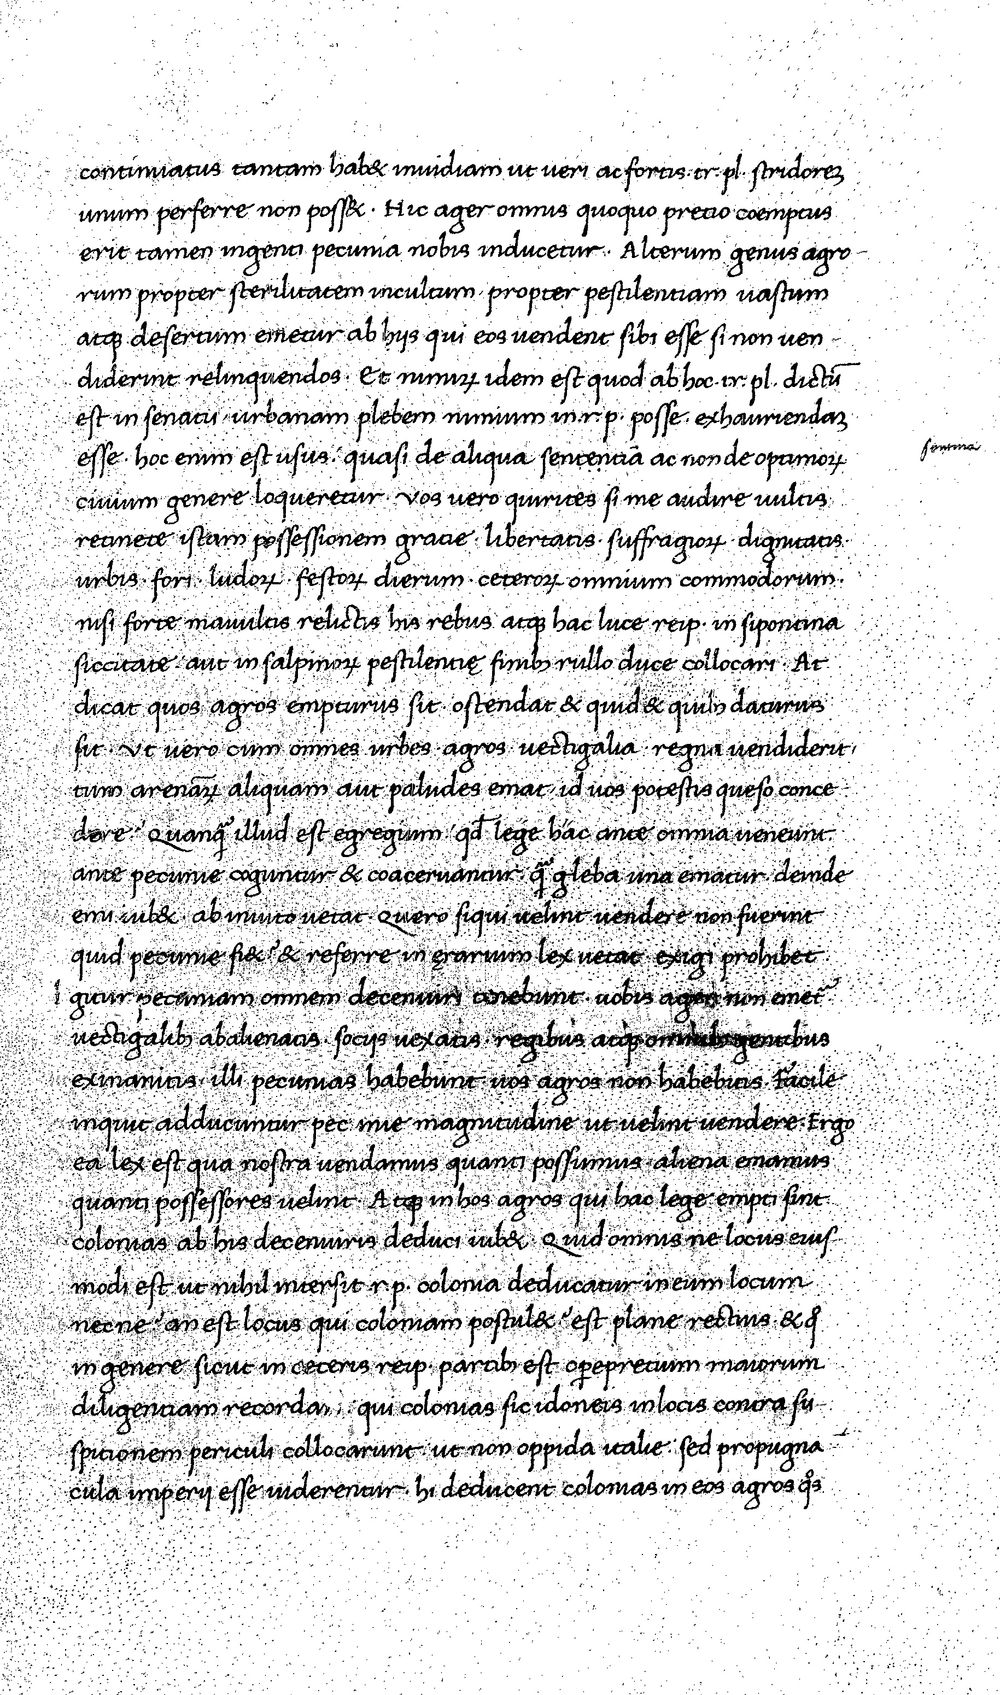 continuatus tantam hab& inuidiam ut ueri ac fortis·tr·pl· stridoreꝫ
unum perferre non poss&· Hic ager omnis quoquo precio coemptus
erit tamen ingenti pecunia nobis inducetur· Alterum genus agro-
rum propter sterilitatem incultum· propter pestilentiam uastum
atqꝫ desertum emetur ab hijs qui eos uendent sibi esse si non uen-
diderint relinquendos· Et nimirꝝ idem est quod ab hoc·tr·pl· dictū
est in senatu· urbanam plebem nimium in·r·p· posse· exhauriendaꝫ
esse· hoc enim est usus· quasi de aliqua sententiā ac non de optimorꝝ
sentina
ciuium genere loqueretur· Vos uero quirites si me audire uultis
retinete istam possessionem gratie· libertatis· suffragiorꝝ· dignitatis·
urbis· fori· ludorꝝ· festorꝝ dierum· ceterorꝝ omnium commodorum·
nisi forte mauultis relictis his rebus atqꝫ hac luce reip· in sipontina
siccitate· aut in salpinorꝝ pestilentię finibꝫ rullo duce collocari· At
dicat quos agros empturus sit· ostendat & quid & quibꝫ daturus
sit· Vt uero cum omnes urbes· agros· uectigalia· regna uendiderit·
tum arenāꝝ aliquam aut paludes emat· id uos potestis queso conce
dere? Quanꝗ̃ illud est egregium· qđ lege hac ante omnia ueneunt·
ante pecunie coguntur & coaceruantur· ꝗ̃ gleba una ematur· deinde
emi iub&· ab inuito uetat· Quero si qui uelint uendere non fuerint
quid pecunie fi&? & referre in ęrarium lex uetat· exigi prohibet·
I gitur pecuniam omnem decemuiri tenebunt· uobis ager non emet᷑
uectigalibꝫ abalienatis· socijs uexatis· regibus atqꝫ omnibus gentibus
exinanitis· illi pecunias habebunt· uos agros non habebitis· Facile
inquit adducuntur pecunie magnitudine ut uelint uendere· Ergo
ea lex est qua nostra uendamus quanti possumus· aliena emamus
quanti possessores uelint· Atqꝫ in hos agros qui hac lege empti sint·
colonias ab his decemuiris deduci iub&· Quid omnis ne locus eius
modi est ut nihil intersit r·p· colonia deducatur in eum locum
nec ne? an est locus qui coloniam postul&? est plane rectius· & ꝙ
in genere sicut in ceteris reip· partibꝫ est operepretium maiorum
diligentiam recorda, qui colonias sic idoneis in locis contra su
spitionem periculi collocarunt· ut non oppida italie· sed propugna
cula imperij esse uiderentur· hi deducent colonias in eos agros qͦs